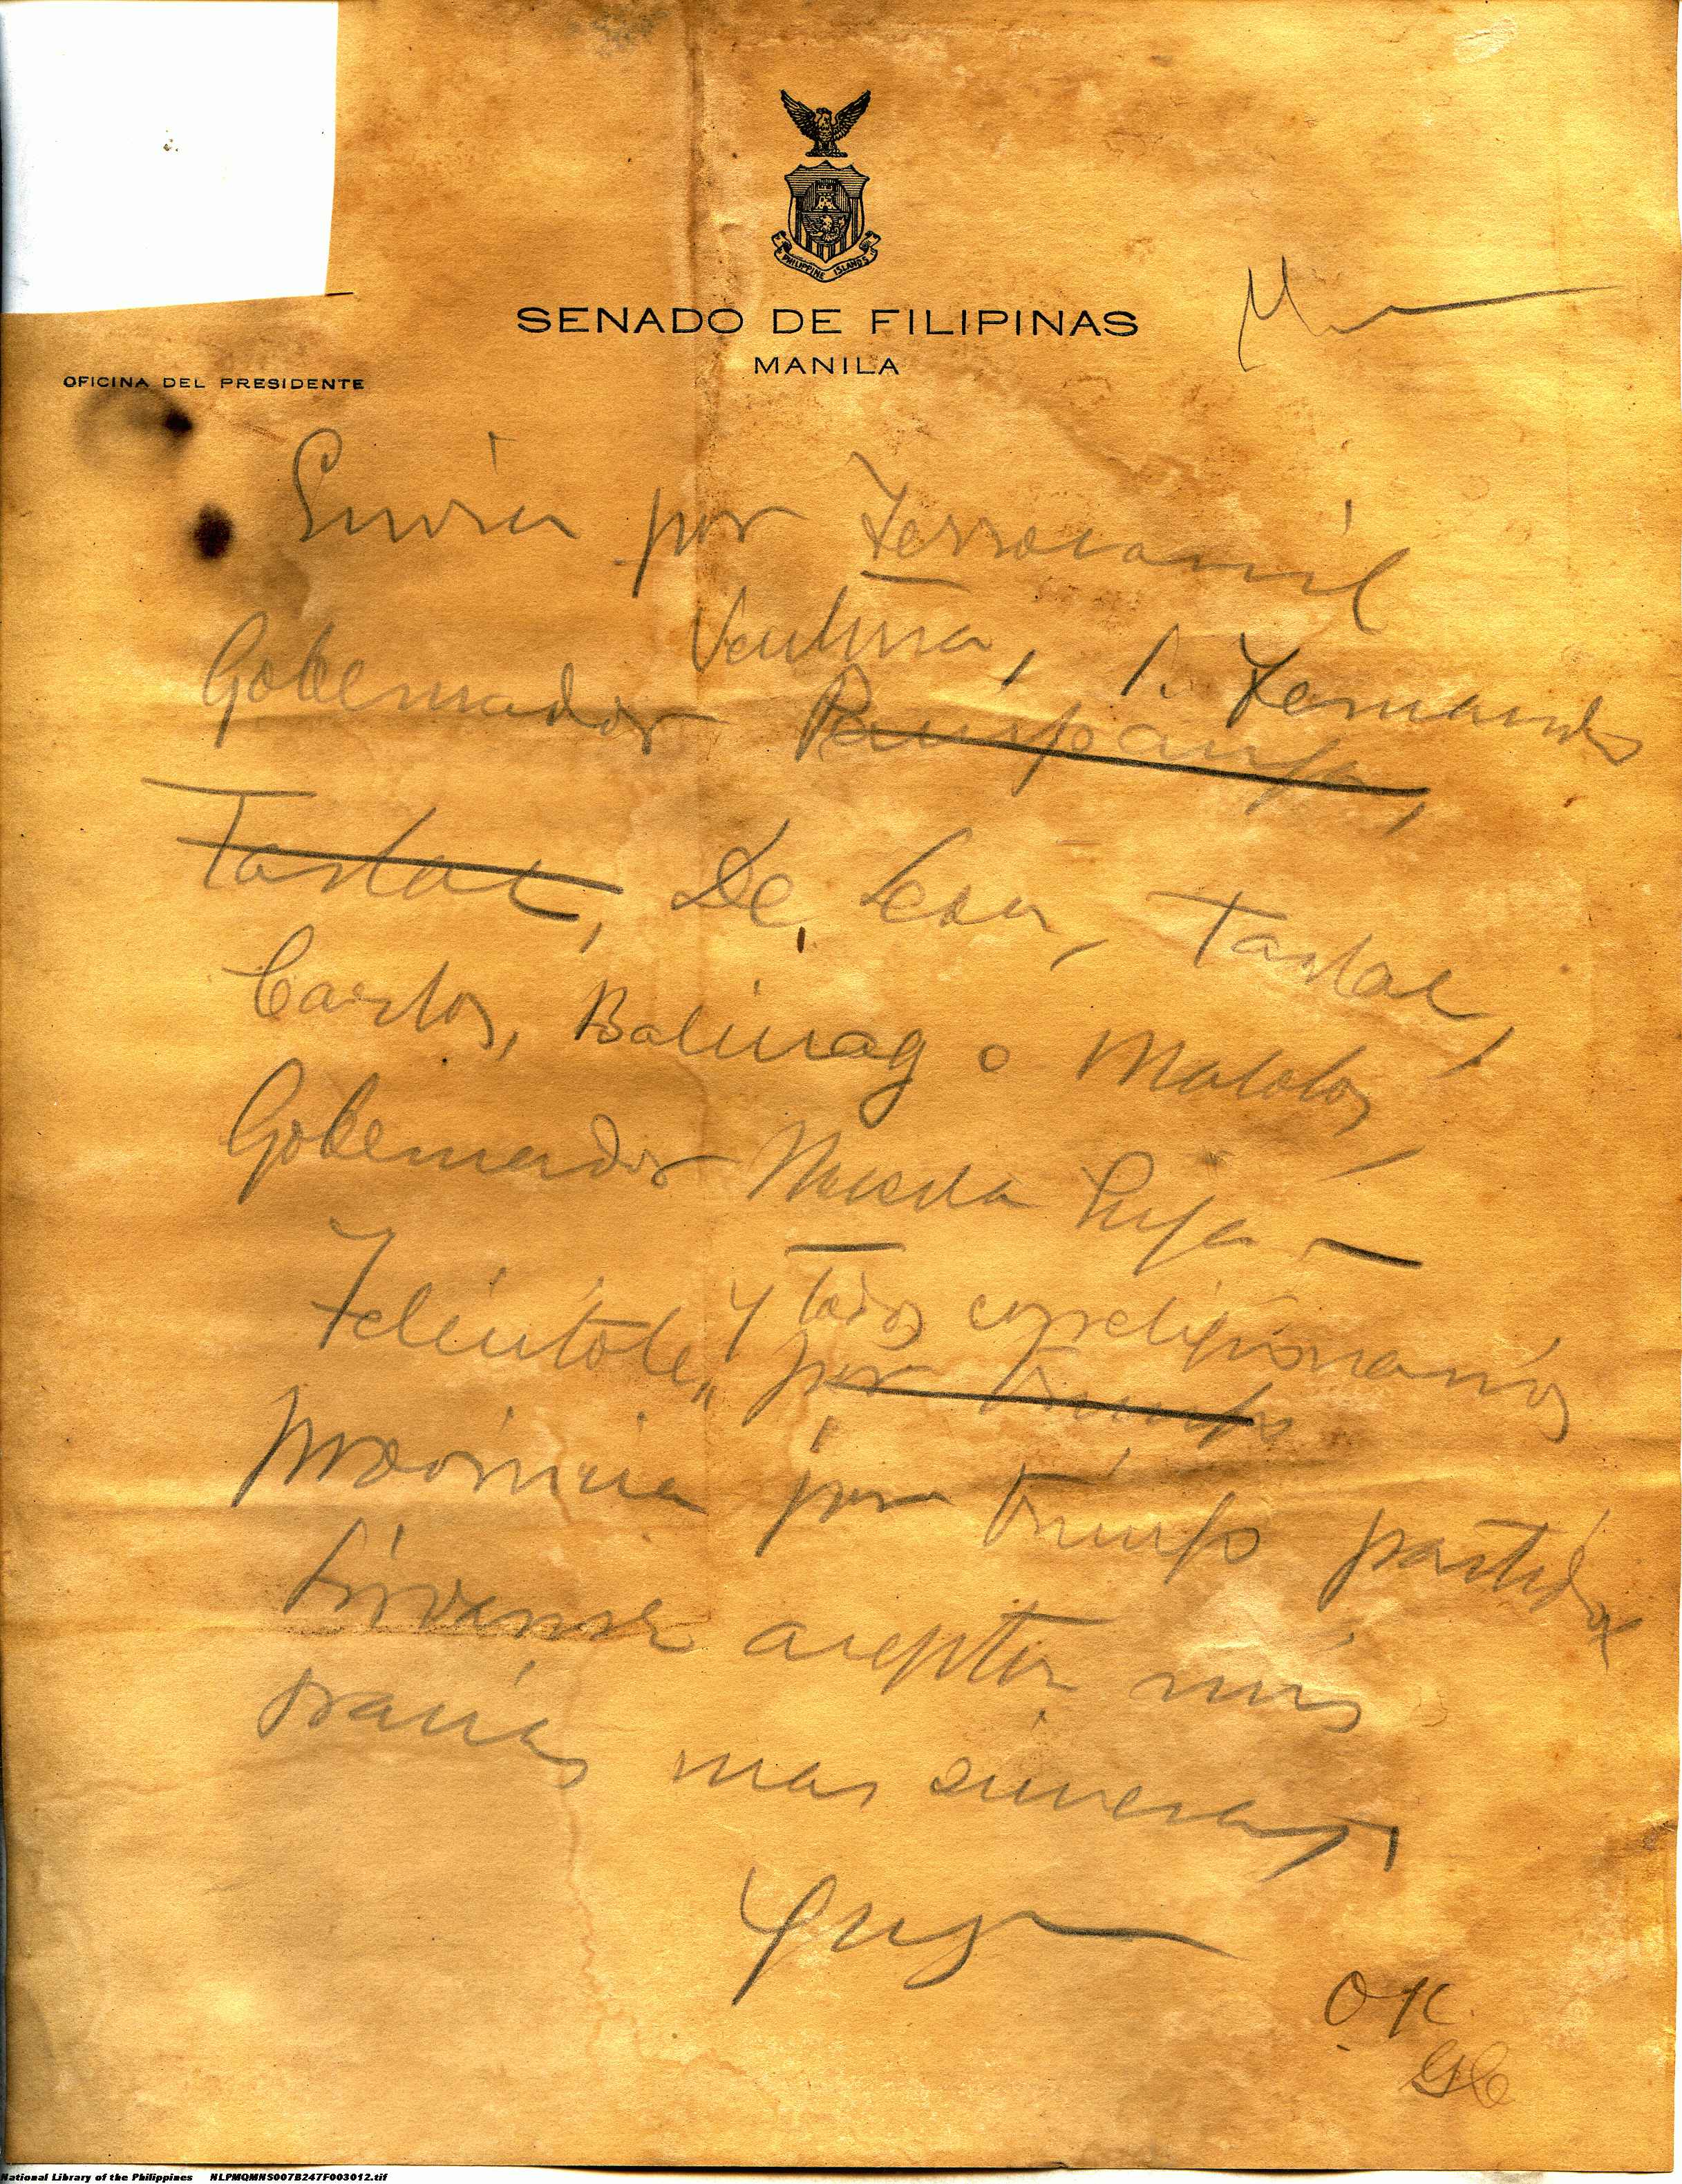 PHILIPPINE ISLANDS
SENADO DE FILIPINAS
MANILA
OFICINA DEL PRESIDENTE
Enviar por Ferrocarril
Ventura, S. Fernando
Gobernador Pampanga,
Tarlac, De Leon, Tarlac,
Carlos, Baliuag o Malolos,
Gobernador Nueva Ecija —
Felicitole, y todos correligionarios
por triunfo
provincia por triunfo partido
Sirvanse aceptar mis
gracias mas sinceras,
Quezon
O.K.
National Library of the Philippines NLPMQMNS007B247F003012.tif